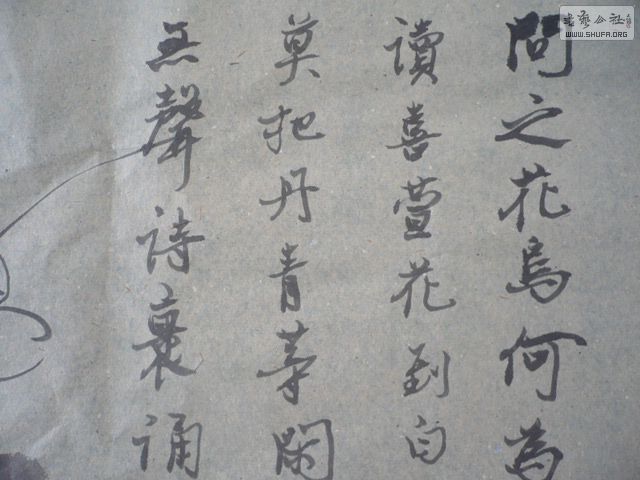 問之花鳥何為
讀喜萱花到白
莫把丹青等閑
无聲詩裏誦
書藝公社
WWW.SHUFA.ORG